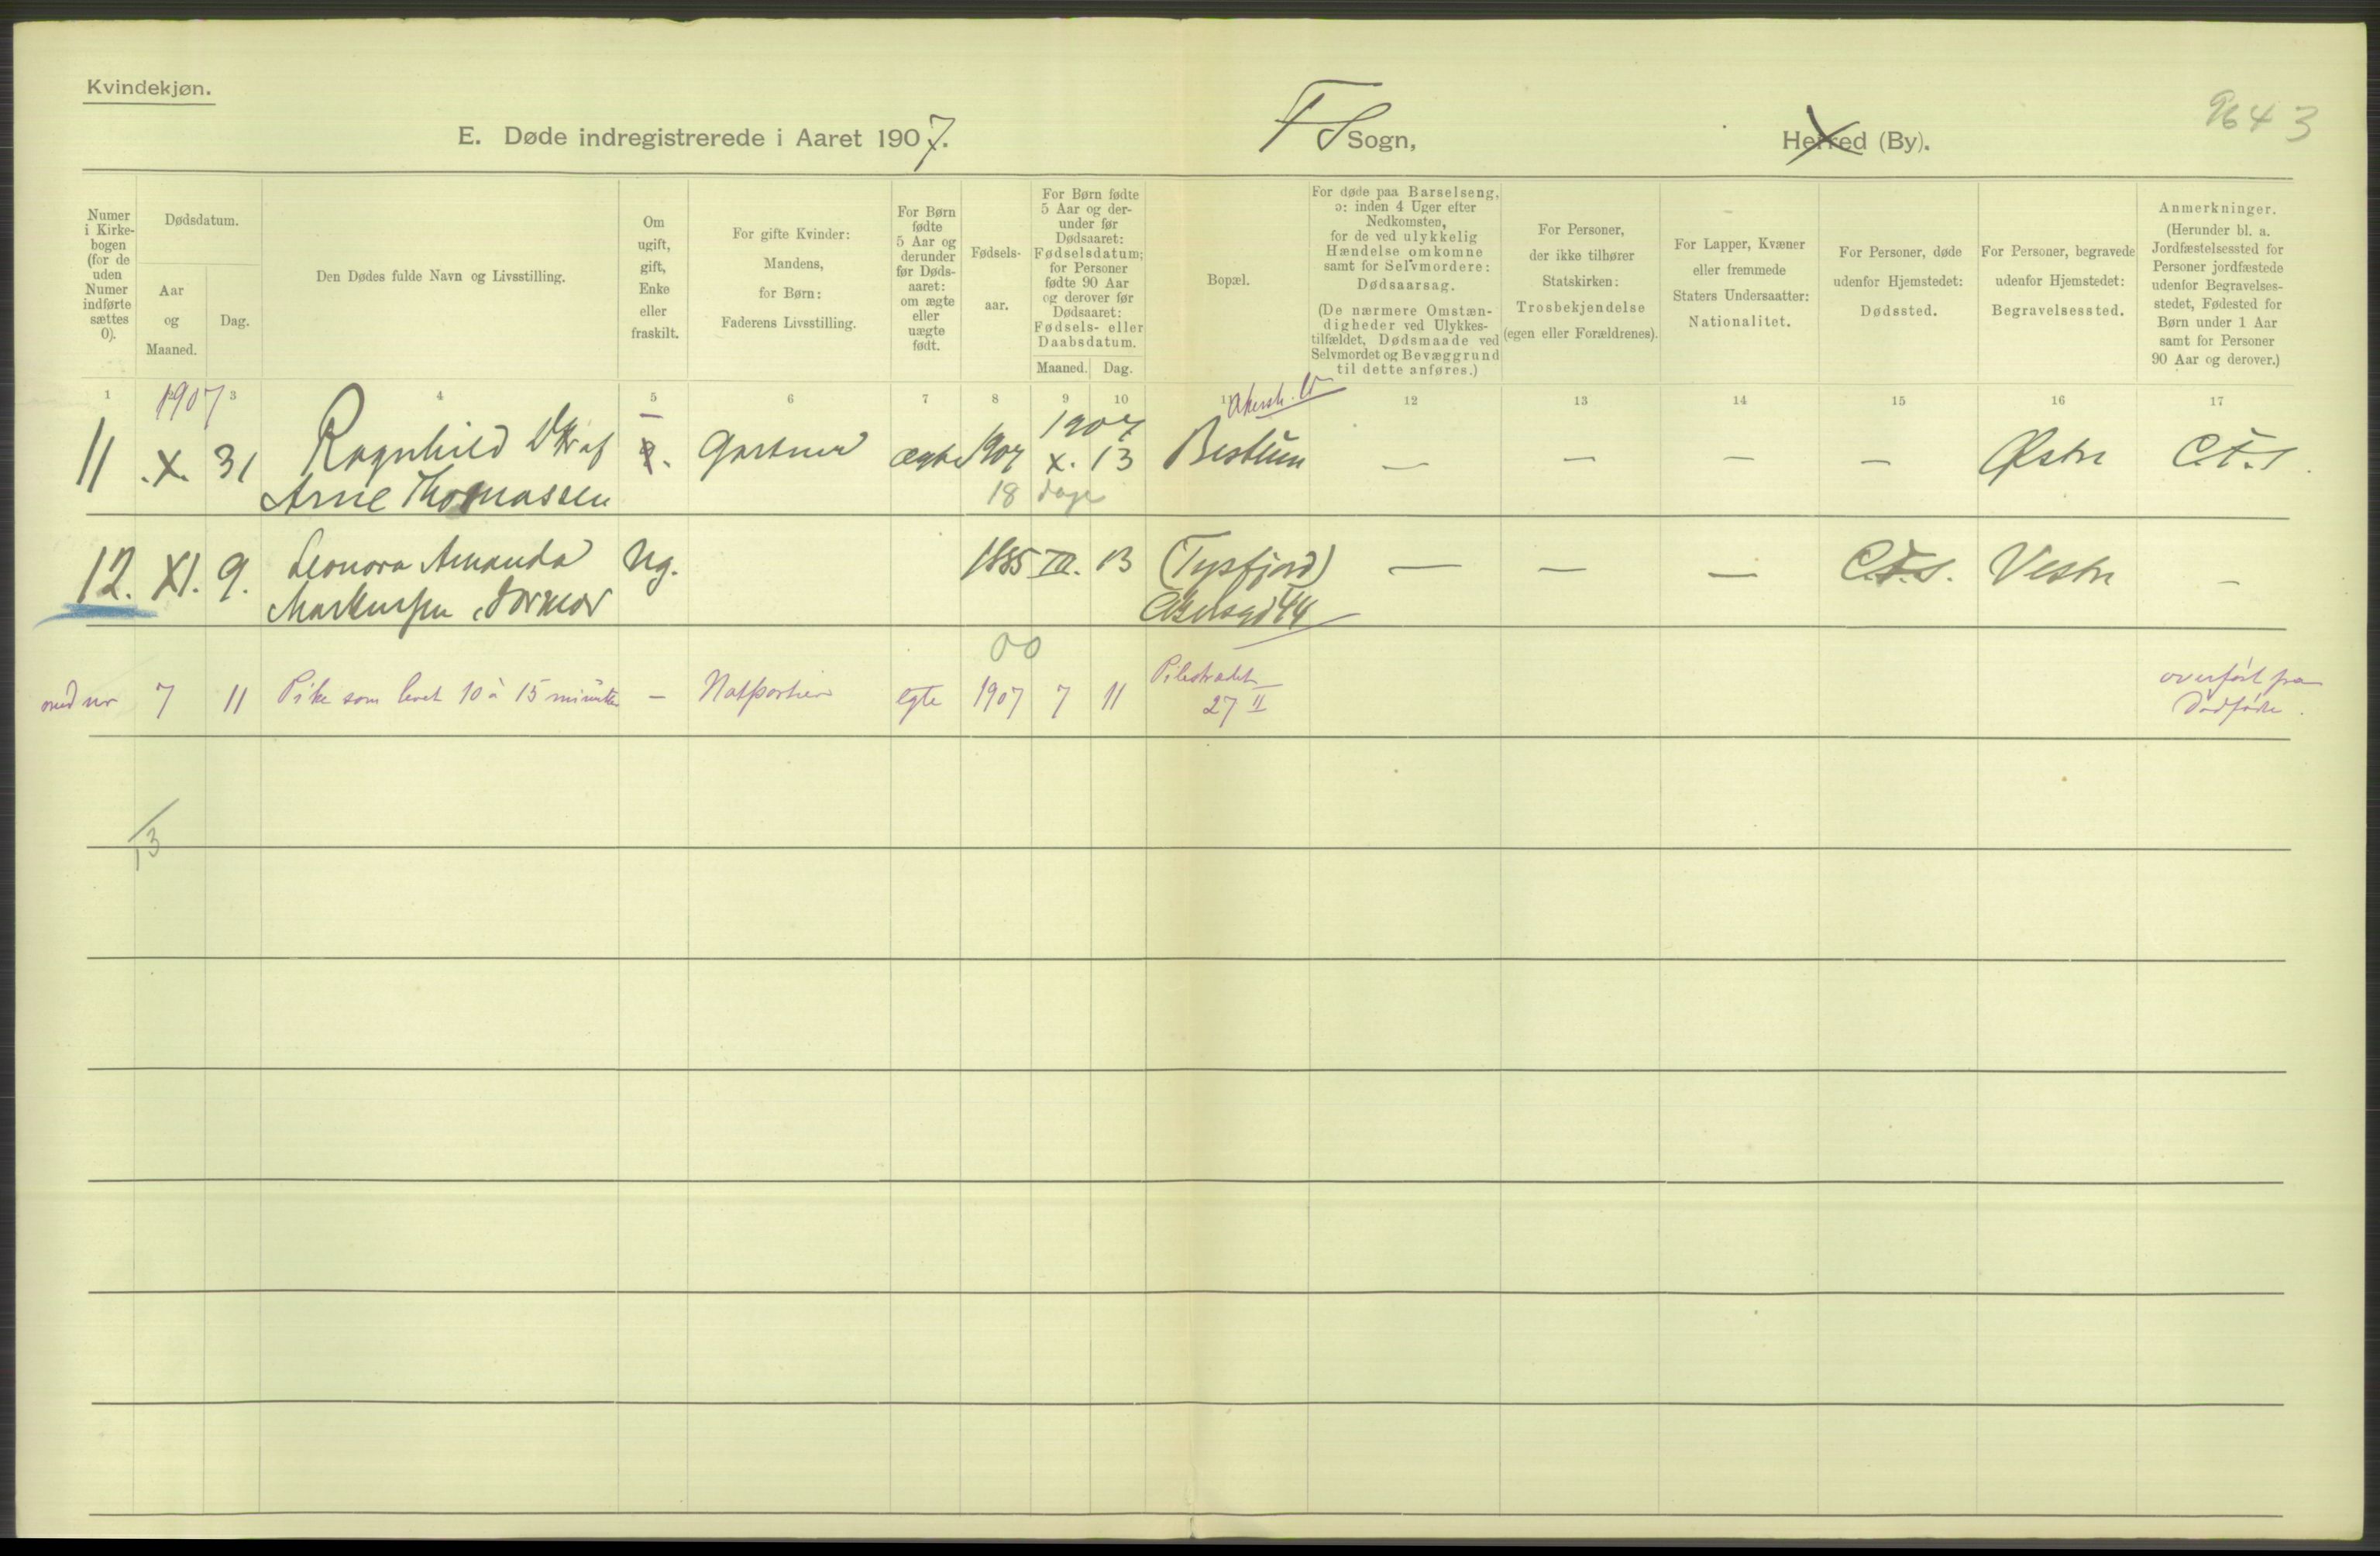 Kvindekjøn.
E. Døde indregistrerede i Aaret 1907.
F S Sogn,
Herred (By).
Numer i Kirke-bogen (for de uden Numer indførte sættes 0).
Dødsdatum.
Aar og Maaned.
Dag.
Den Dødes fulde Navn og Livsstilling.
Om ugift, gift, Enke eller fraskilt.
For gifte Kvinder: Mandens, for Børn: Faderens Livsstilling.
For Børn fødte 5 Aar og derunder før Døds-aaret: om ægte eller uægte født.
Fødsels-aar.
For Børn fødte 5 Aar og der-under før Dødsaaret: Fødselsdatum; for Personer fødte 90 Aar og derover før Dødsaaret: Fødsels- eller Daabsdatum.
Maaned. Dag.
Bopæl.
For døde paa Barselseng, ɔ: inden 4 Uger efter Nedkomsten, for de ved ulykkelig Hændelse omkomne samt for Selvmordere: Dødsaarsag.
(De nærmere Omstæn-digheder ved Ulykkes-tilfældet, Dødsmaade ved Selvmordet og Bevæggrund til dette anføres.)
For Personer, der ikke tilhører Statskirken: Trosbekjendelse (egen eller Forældrenes).
For Lapper, Kvæner eller fremmede Staters Undersaatter: Nationalitet.
For Personer, døde udenfor Hjemstedet: Dødssted.
For Personer, begravede udenfor Hjemstedet: Begravelsessted.
Anmerkninger. (Herunder bl. a. Jordfæstelsessted for Personer jordfæstede udenfor Begravelses-stedet, Fødested for Børn under 1 Aar samt for Personer 90 Aar og derover.)
1 3 4 5 6 7 8 9 10 11 12 13 14 15 16 17
1907
11 X. 31 Ragnhild D. af — Gartner ægte 1907 1907 X. 13 Bestum — — — — Østre C.F.S.
Arne Thomassen 18 dage
12. XI. 9. Leonora Amanda Ug. 1885 III. 13 (Tysfjord) — — — C.F.S. Vestre —
Markussen, Jormor Akersgd 44
00
7 11 Pike som levet 10 à 15 minutter — Natportier egte 1907 7 11 Pilestrædet 27 II overført fra
Dødfødte.
13